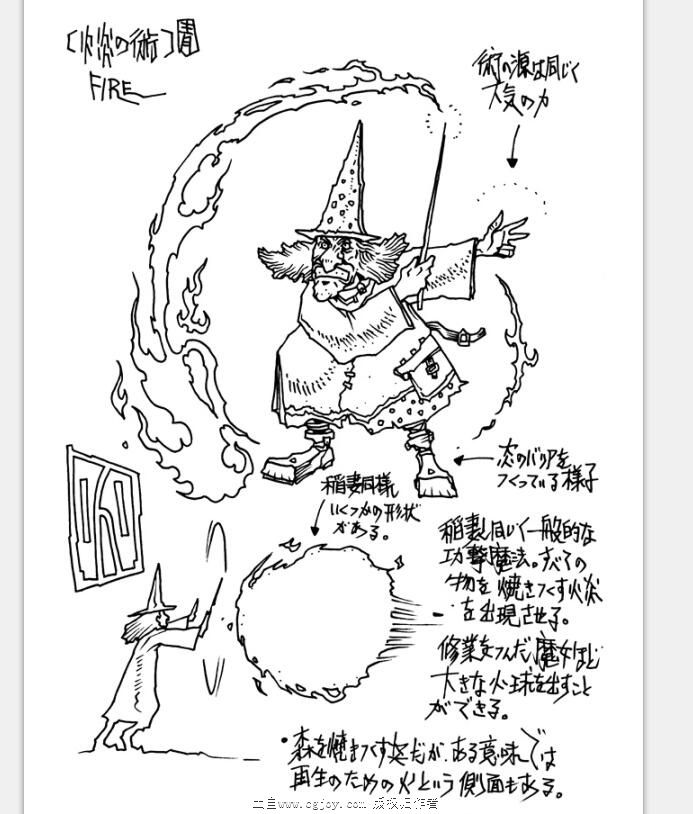 〔火炎の術〕
FIRE
術の源は同じく
大気の力
炎のバリアを
つくっている様子
稲妻同様
いくつかの形状
がある。
稲妻と同じく一般的な
攻撃魔法。すべての
物を焼きつくす火炎
を出現させる。
修業をつんだ魔女ほど
大きな火球を出すこと
ができる。
・森を焼きつくす炎だが、ある意味では
再生のための火という側面もある。
www.cgjoy.com 版权归作者